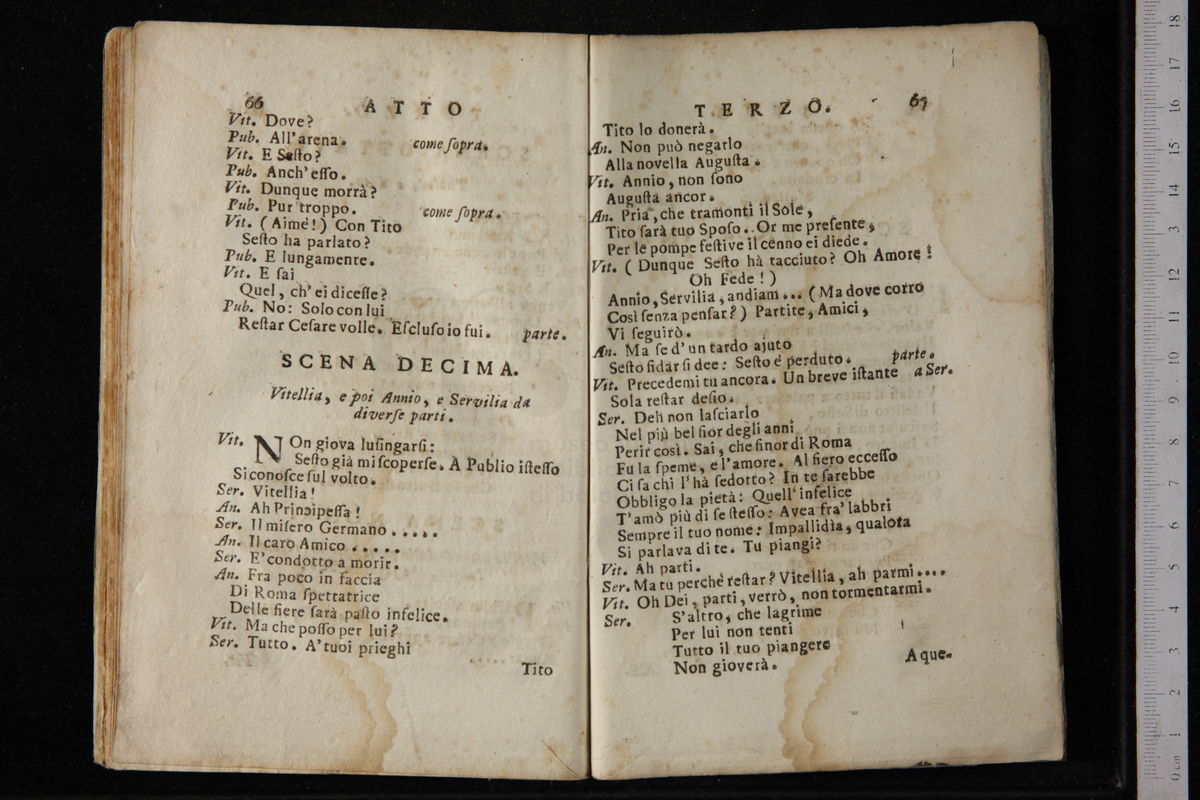 66 ATTO
Vit. Dove?
Pub. All'arena. come ſopra.
Vit. E Seſto?
Pub. Anch'eſſo.
Vit. Dunque morrà?
Pub. Pur troppo. come ſopra.
Vit. (Aimè!) Con Tito
Seſto ha parlato?
Pub. E lungamente.
Vit. E ſai
Quel, ch'ei diceſſe?
Pub. No: Solo con lui
Reſtar Ceſare volle. Eſcluſo io fui. parte.
SCENA DECIMA.
Vitellia, e poi Annio, e Servilia da
diverſe parti.
Vit. NOn giova luſingarſi:
Seſto già mi ſcoperſe. A Publio iſteſſo
Si conoſce ſul volto.
Ser. Vitellia!
An. Ah Principeſſa!
Ser. Il miſero Germano.....
An. Il caro Amico.....
Ser. E' condotto a morir.
An. Fra poco in faccia
Di Roma ſpettatrice
Delle fiere ſarà paſto infelice.
Vit. Ma che poſſo per lui?
Ser. Tutto. A' tuoi prieghi
Tito
TERZO. 67
Tito lo donerà.
An. Non può negarlo
Alla novella Auguſta.
Vit. Annio, non ſono
Auguſta ancor.
An. Pria, che tramonti il Sole,
Tito ſarà tuo Spoſo. Or me preſente,
Per le pompe feſtive il cenno ei diede.
Vit. (Dunque Seſto hà tacciuto? Oh Amore!
Oh Fede!)
Annio, Servilia, andiam... (Ma dove corro
Così ſenza penſar?) Partite, Amici,
Vi ſeguirò.
An. Ma ſe d'un tardo ajuto
Seſto fidar ſi dee: Seſto è perduto. parte.
Vit. Precedemi tu ancora. Un breve iſtante a Ser.
Sola reſtar deſio.
Ser. Deh non laſciarlo
Nel più bel fior degli anni
Perir così. Sai, che finor di Roma
Fu la ſpeme, e l'amore. Al fiero ecceſſo
Ci ſa chi l'hà ſedotto? In te ſarebbe
Obbligo la pietà: Quell'infelice
T'amò più di ſe ſteſſo: Avea fra' labbri
Sempre il tuo nome: Impallidìa, qualora
Si parlava di te. Tu piangi?
Vit. Ah parti.
Ser. Ma tu perchè reſtar? Vitellia, ah parmi....
Vit. Oh Dei, parti, verrò, non tormentarmi.
Ser. S'altro, che lagrime
Per lui non tenti
Tutto il tuo piangere
Non gioverà.
A que-